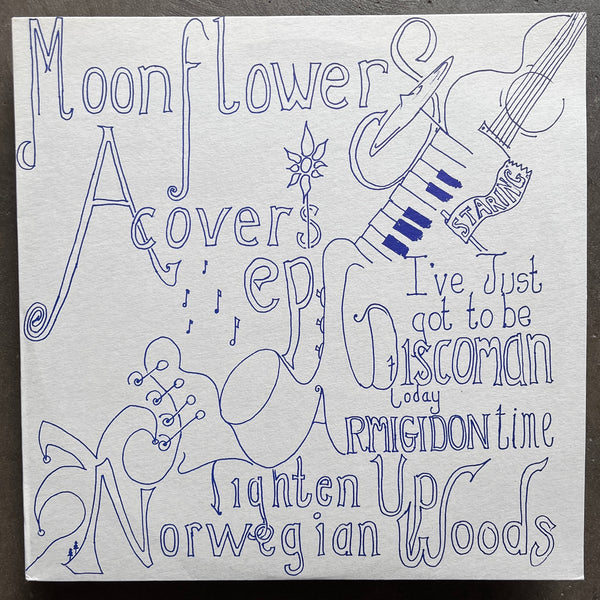 Moonflowers
A covers
ep
STARING
I've Just
got to be
Discoman
today
ARMIGIDON time
Tighten Up
Norwegian Woods